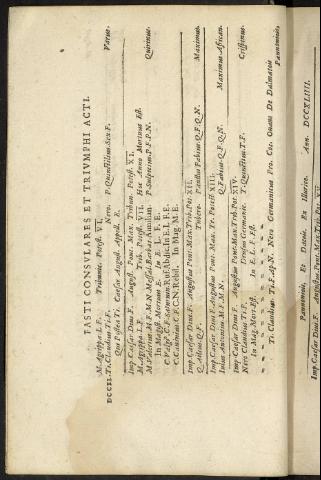 FASTI CONSVLARES ET TRIVMPHI ACTI.
M. Agrippa L. F. Tribunic. Potest. VI.
DCCXL. Ti. Claudius Ti. F. Nero. P. Quinctilius Sex. F. Varus.
Qui Postea Ti. Caesar August. Appell. E.
Imp. Caesar Divi F. August. Pont. Max. Tribun. Potest. XI.
M. Agrippa L. F. Trib. Potest. VII. Hoc Anno Mortuus Est.
M. Valerius M. F. M. N. Messal. Barbat. Aimilian. P. Sulpicius P. F. P. N. Quirinius.
In Magist. Mortuus E. In E. L. F. E.
C. Valgi. C. F. Rufus Abdic. In E. L. F. E.
C. Caninius C. F. C. N. Rebil. In Mag. M. E.
Imp. Caesar Divi F. Augustus Pont. Max. Trib. Pot. XII.
Q. Aelius Q. F. Tubero. Paullus Fabius Q. F. Q. N. Maximus.
Imp. Caesar Divi F. Augustus Pont. Max. Tr. Potest. XIII.
Iulus Antonius M. F. M. N. Q. Fabius Q. F. Q. N. Maximus African.
Imp. Caesar Divi F. Augustus Pont. Max. Trib. Pot. XIV.
Nero Claudius Ti. F. Drusus Germanic. T. Quinctius T. F. Crispinus.
In Mag. Mort. Est. In E. L. F. Est.
Ti. Claudius Ti. F. Ap. N. Nero Germanicus Pro. Cos. Ovans De Dalmateis
Pannonieis.
Pannonieis, Et Dacieis, Ex Illurico. Ann. DCCXLIIII.
Imp. Caesar Divi F. Augustus Pont. Max. Trib. Pot. XV.